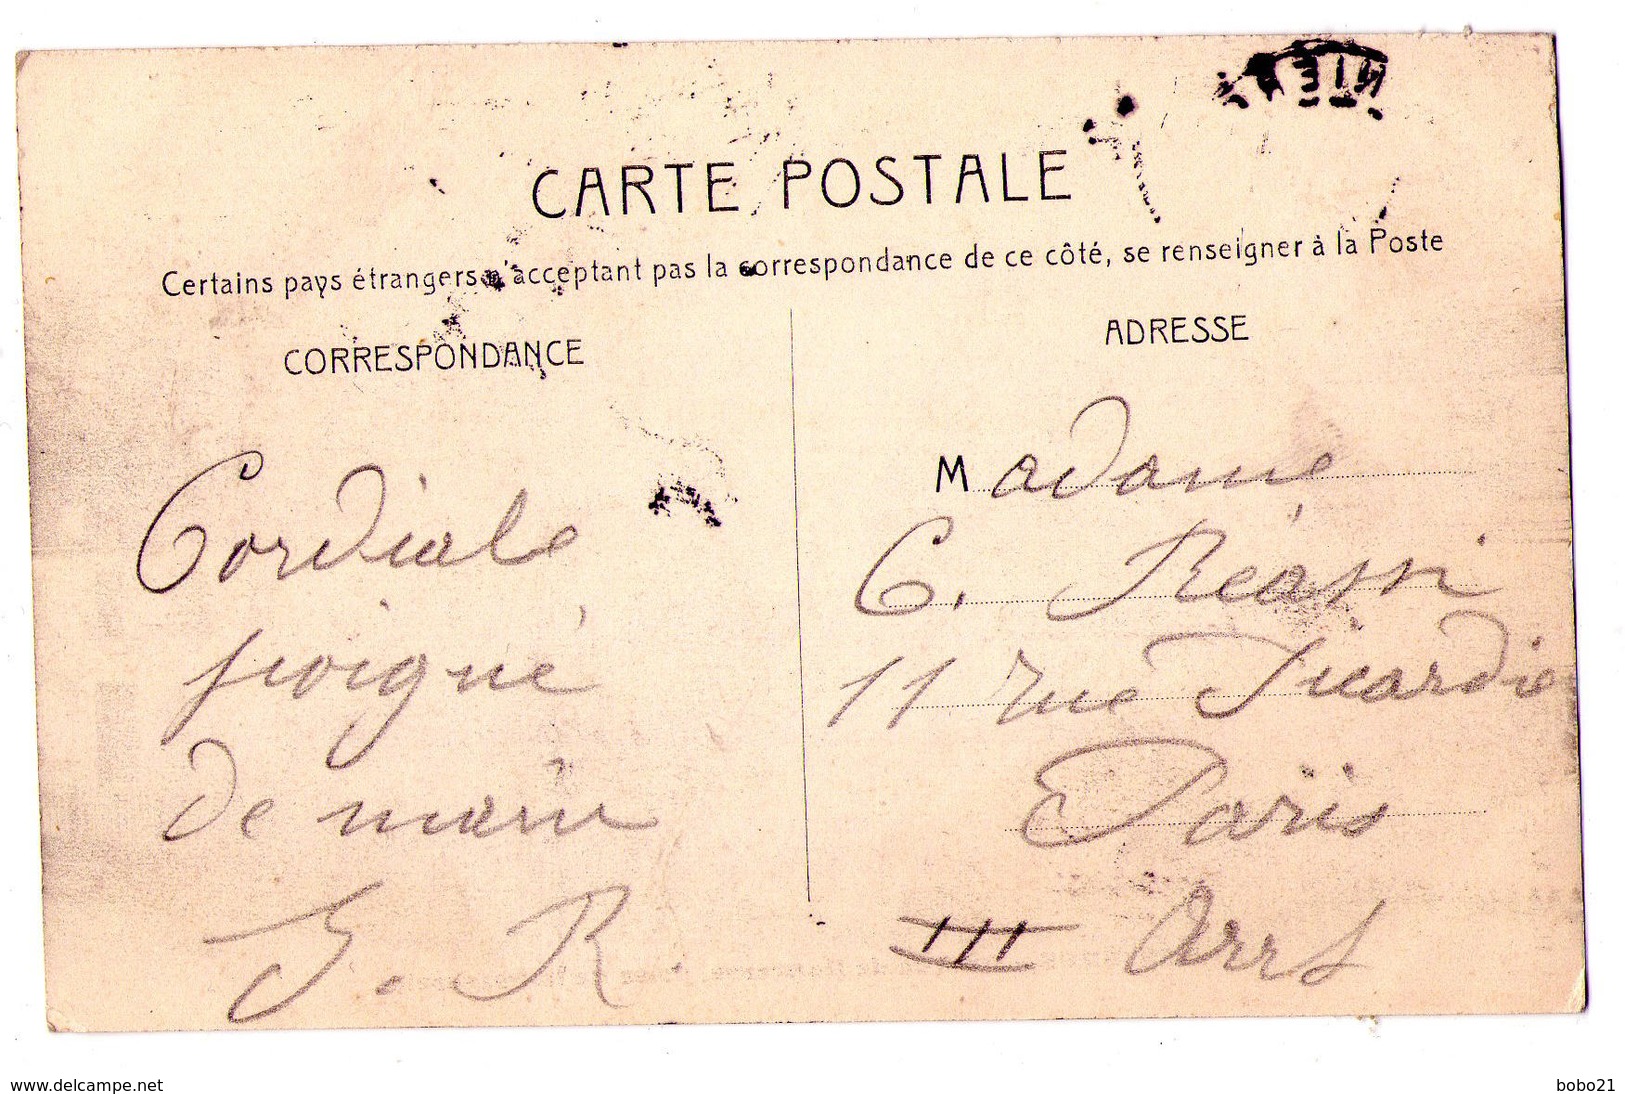 CARTE POSTALE
Certains pays étrangers n'acceptant pas la correspondance de ce côté, se renseigner à la Poste
CORRESPONDANCE
Cordiale
poigné
de main
R.
ADRESSE
Madame
C. Réassi
11 rue Picardie
Paris
III Arrt
www.delcampe.net
bobo21